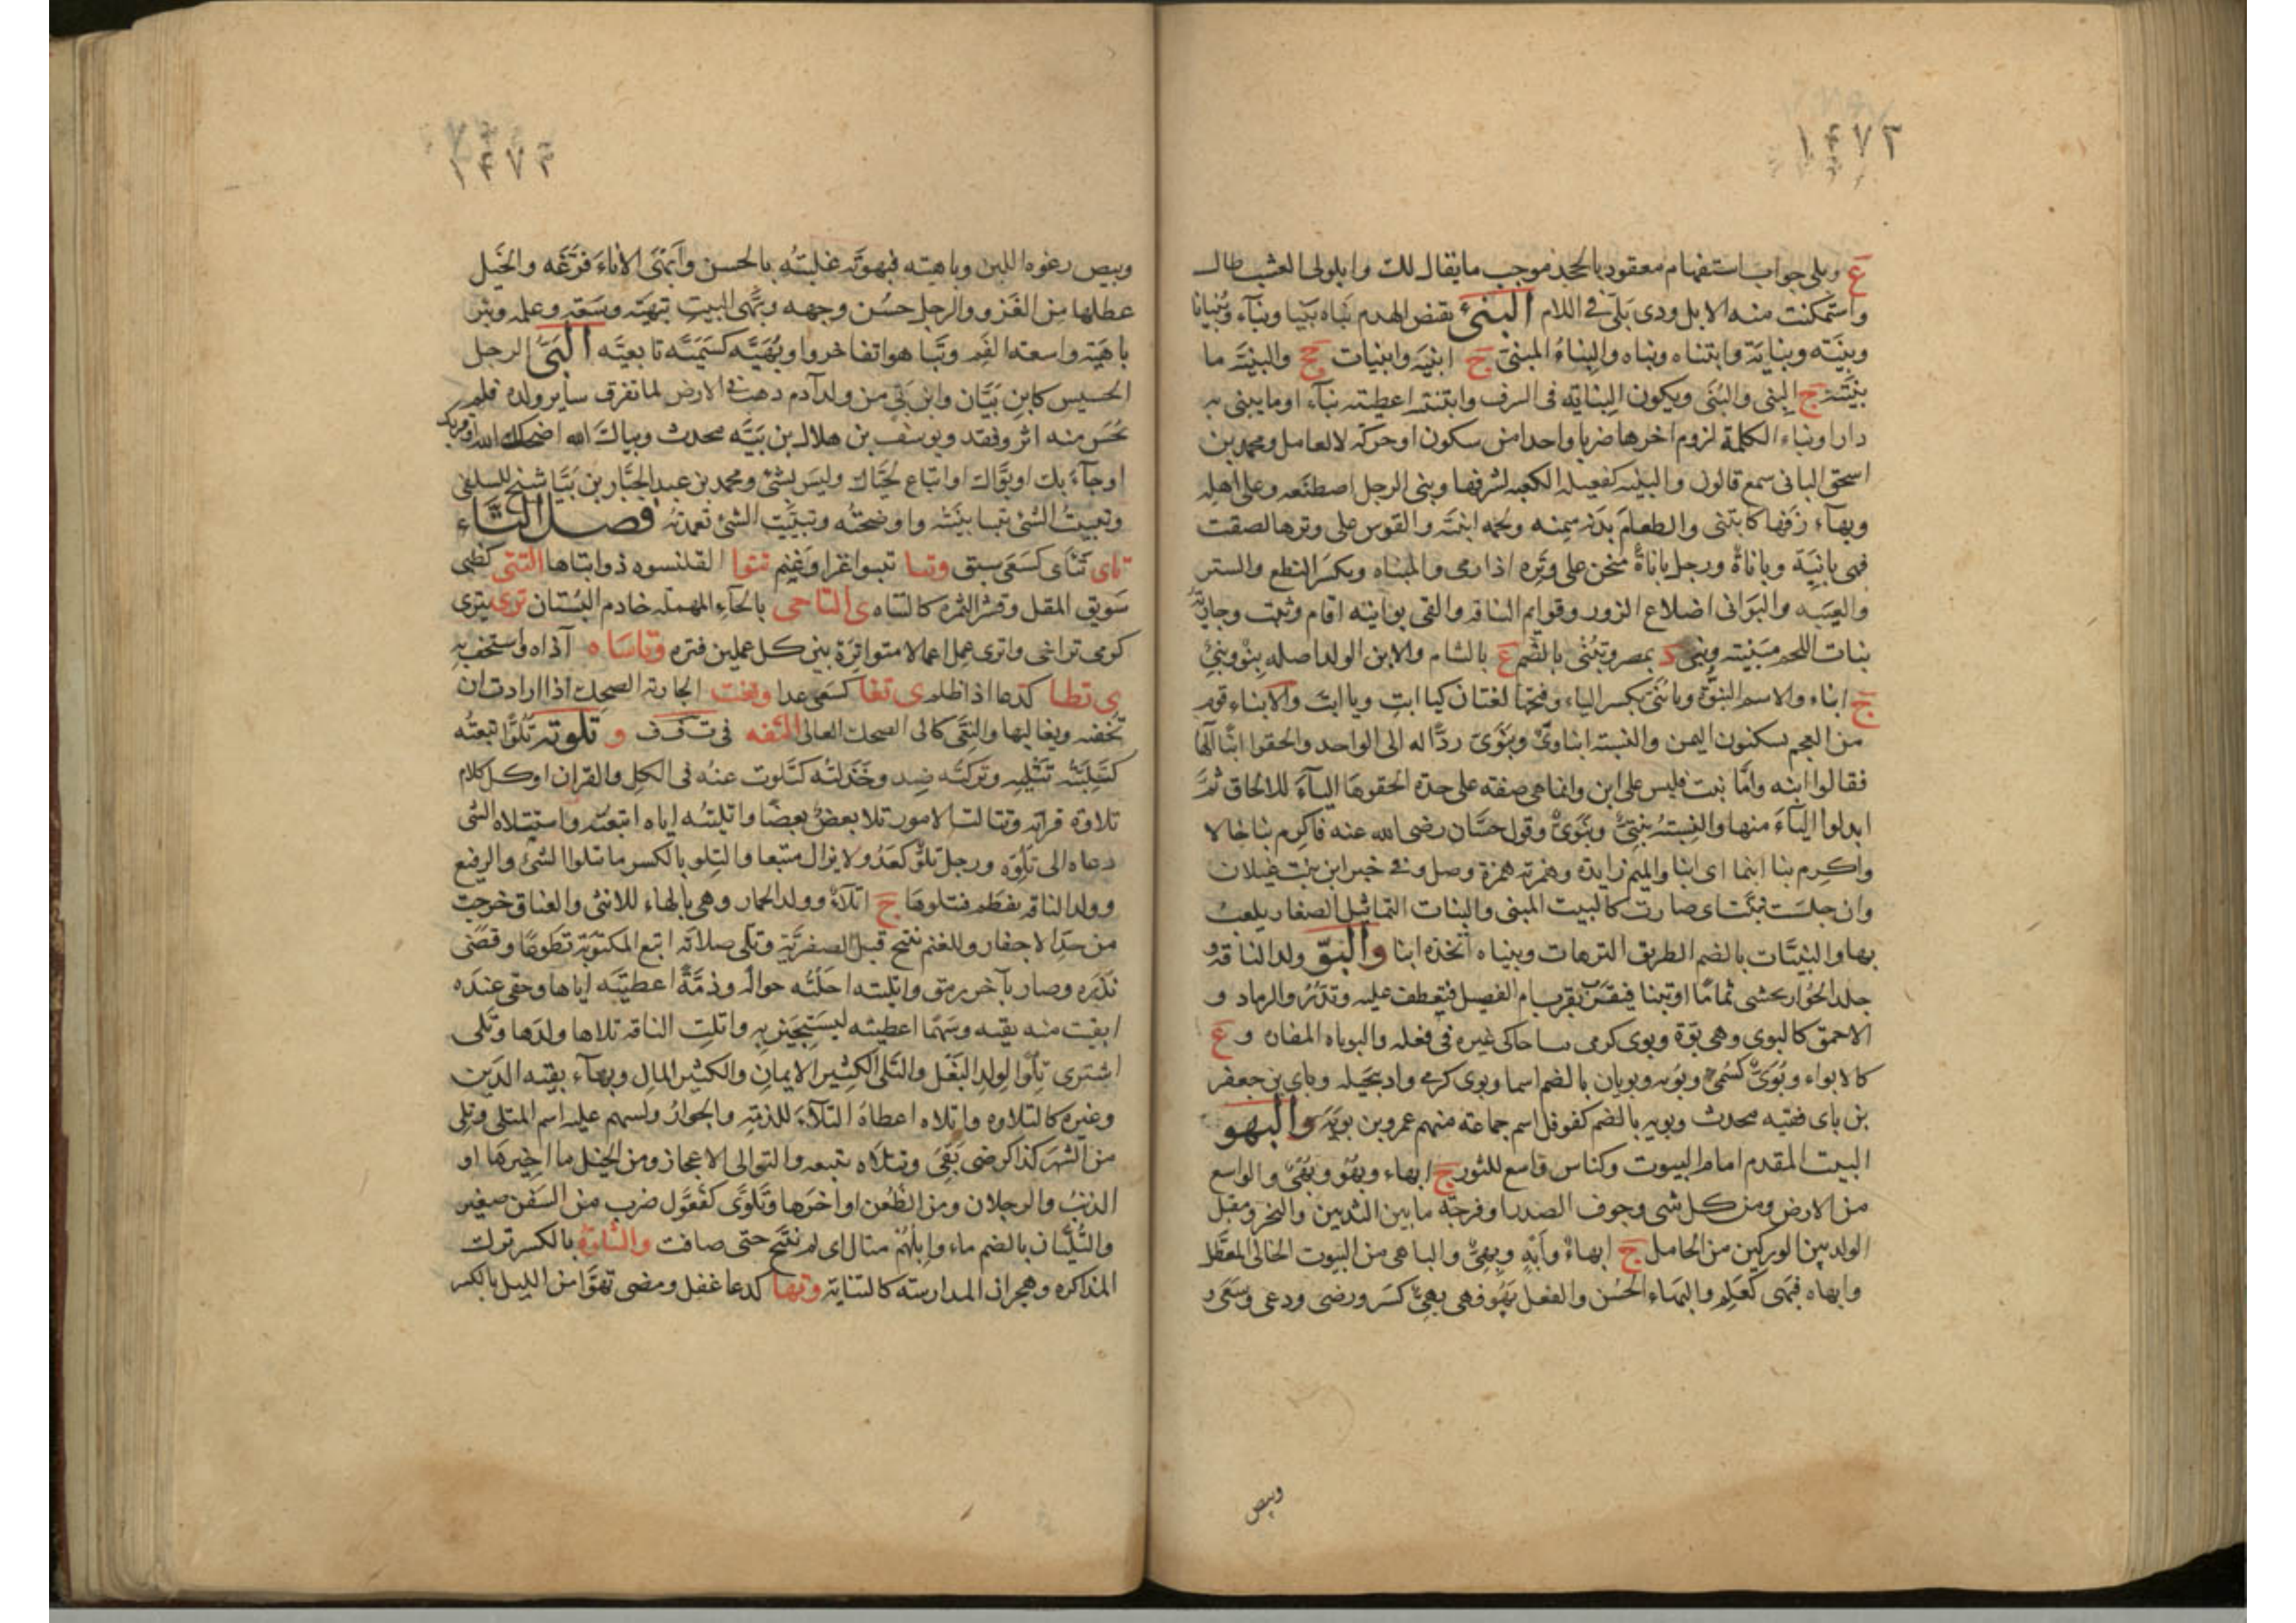 ١٤٧٢
ع وبلى جواب استفهام معقود بالجحد موجب ما يقال لك وابلولى العشب طال
واستمكنت منه الابل ودى بلى فى اللام البنى نقض الهدم بناه بنيا وبناء وبنيانا
وبنية وبناية وابتناه وبناه والبناء المبنى ج ابنية وابنيات جج والبنية ما
بنيته ج البنى والبنى ويكون البناية فى الشرف وابنته اعطيته بناء اوما يبنى به
دارا وبناء الكلمة لزوم اخرها ضربا واحدا من سكون او حركة لا لعامل ومحمد بن
اسحق البانى سمع قالون والبنيه كغنيه الكعبه لشرفها وبنى الرجل اصطنعه وعلى اهله
وبهاء زفها كابتنى والطعام بدنه سمنه ولحمه انبته والقوس على وترها لصقت
فهى بانية وباناة ورجل باناة منحن على وتره اذا رمى والمبناه ويكسر النطع والستر
والعيبه والبوانى اضلاع الزور وقوايم الناقه والقى بوانيه اقام وثبت وجارية
بنات اللحم مبنيته وبنى د بمصر وتبنى بالضم ع بالشام والابن الولد اصله بنى وبنو
ج ابناء والاسم البنوة ويا بنى بكسر الياء وفتحها لغتان كيا ابت ويا ابت والابناء قوم
من العجم سكنون اليمن والنسبة ابناوى وبنوى ردا له الى الواحد والحقوا ابنا الهاء
فقالوا ابنه واما بنت فليس على ابن وانما هى صفة على حدة الحقوها الياء للالحاق ثم
ابدلوا التاء منها والنسبة بنتى وبنوى وقول حسان رضى الله عنه فاكرم بنا خالا
واكرم بنا ابنما اى ابنا والميم زايدة وهمزته همزة وصل وفى خبر ابن بنت غيلان
وان جلست تبنت اى صارت كالبيت المبنى والبنات التماثيل الصغار يلعب
بها والبنيات بالضم الطريق الترهات وبنياه اتخذه ابنا والبو ولد الناقة و
جلد الحوار يحشى ثماما او تبنا فيقرب بقرب ام الفصيل فتعطف عليه وتدر والرماد و
الاحمق كالبوى وهى بوة وبوى كرمى سا حاكى غيره فى فعله والبوباه المفازه و ع
كالابواء وبوى كسمى وبويه وبويان بالضم اسما وبوى كرمى واد بجيله وباى بن جعفر
بن باى فقيه محدث وبويه بالضم كفوفل اسم جماعة منهم عمرو بن بويه والبهو
البيت المقدم امام البيوت وكناس واسع للثور ج ابهاء وبهو وبهى والواسع
من الارض ومن كل شى وجوف الصدر او فرجة ما بين الثديين والنحر ومقبل
الولد بين الوركين من الحامل ج ابهاء وابه وبهى والباهى من البيوت الخالى المعطل
وابهاه فبهى كعلم والبهاء الحسن والفعل بهو فهى بهى كسر ورضى ودعى وسعى و
وبيص
١٤٧٣
وبيص رغوه اللبن وباهيته فبهوته غلبته بالحسن وابهى الاناء فرغه والخيل
عطلها من الغزو والرجل حسن وجهه وبهى البيت تبهية وسعه وعمله وبئر
باهية واسعة الفم وتباهوا تفاخروا وبهية كسمية تابعية البى الرجل
الخسيس كابن بيان وابن بى من ولد آدم ذهب فى الارض لما تفرق ساير ولده فلم
يحس منه اثر وفقد ويوسف بن هلال بن بية محدث وبياك الله اضحكك الله او قربك
اوجاء بك او بواك او اتباع لحياك وليس بشئ ومحمد بن عبد الجبار بن بيا شيخ للسلفى
وتبييت الشئ تبيا بينته واوضحته وتبييت الشئ تعمدته فصل التاء
تاى تتاى كسعى سبق وتبا تبوا غزا وغنم تتوا القلنسوه ذوابتاها التتى كظبى
سويق المقل وقشر الثمره كالتتاه ى التاحى بالحاء المهمله خادم البستان ترى يترى
كرمى تراخى واترى عمل اعمالا متواترة بين كل عملين فتره وتاساه آذاه واستخف به
ى تطا كدعا اذا ظلم ى تغا كسعى عدا وتغت الجارية الضحك اذا ارادت ان
تخفنه ويغالبها والتغى كالى الضحك العالى التفه فى ت ف ف و تلوته تلوا تبعته
كتليته تتليه وتركته ضد وخذلته كتلوت عنه فى الكل والقران او كل كلام
تلاوة قراته وتتالت الامور تلا بعض بعضا واتليته اياه اتبعته واستتلاه الشى
دعاه الى تلوه ورجل تلو كعدو لا يزال متبعا والتلو بالكسر ما تتلوا الشئ والرفيع
وولد الناقه يفطم فتلوها ج اتلاء وولد الحمار وهى بالهاء للانثى والعناق خرجت
من حد الاجفار والغنم تنتج قبل الصفرية وتلى صلاته اتبع المكتوبة تطوعا وقضى
نذره وصار بآخر رمق واتليته احلته حواله وذمة اعطيته اياها وحقى عنده
ابقيت منه بقيه وسهما اعطيته ليستجيز به واتلت الناقه تلاها ولدها وتلى
اشترى تلوا لولد البغل والتلى الكثير الايمان والكثير المال وبهاء بقيه الدين
وغيره كالتلاوه واتلاه اعطاه التلاء للذمة والجوار ولسهم عليه اسم المتلى وتلى
من الشهر كذا كرضى بقى وتلاه تبعه والتوالى الاعجاز ومن الخيل مآخيرها او
الذنب والرجلان ومن الظعن اواخرها وتلوى كفعول ضرب من السفن صغير
والتليان بالضم ماء وابلهم متال اى لم تنتج حتى صافت والتناوة بالكسر ترك
المذاكره وهجران المدارسه كالتناية وتها كدعا غفل ومضى تهواء من الليل بالكسر